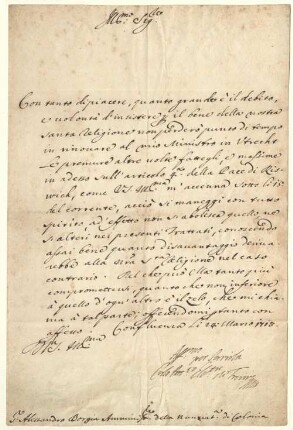 Ill.mo Sig.re
Con tanto di piacere, quanto grande è il debito,
e volontà d'insistere p. il bene della nostra
santa Religione non perderò punto di tempo
in rinovare al mio Ministro in Utrecht
le premure altre volte fattegli, e massime
in adesso sull'articolo 4.o della Pace di Ris-
wich, come VS Ill.ma m'accenna sotto li 15
del corrente, acciò si maneggi con tutto
spirito ad effetto non si abolisca quello ne
si alteri nei presenti Trattati, conoscendo
assai bene quanto disavantaggio deriva-
rebbe alla n'ra S.ta Religione nel caso
contrario. Del che più Ella tanto può
compromettersi, quanto che non inferiore
à quello d'ogn'altro è il zelo, che mi chia-
ma à tal parte; offerendomi p tanto con
affetto
Di VS. Ill.ma Confluenza li 27 Marzo 1713.
Aff.mo per servirla
S.r Alessandro Borgia Amminis.re della Nunziat.a di Colonia